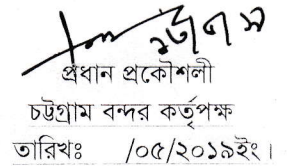 প্রধান প্রকৌশলী
চট্টগ্রাম বন্দর কর্তৃপক্ষ
তারিখঃ /০৫/২০১৯ইং।